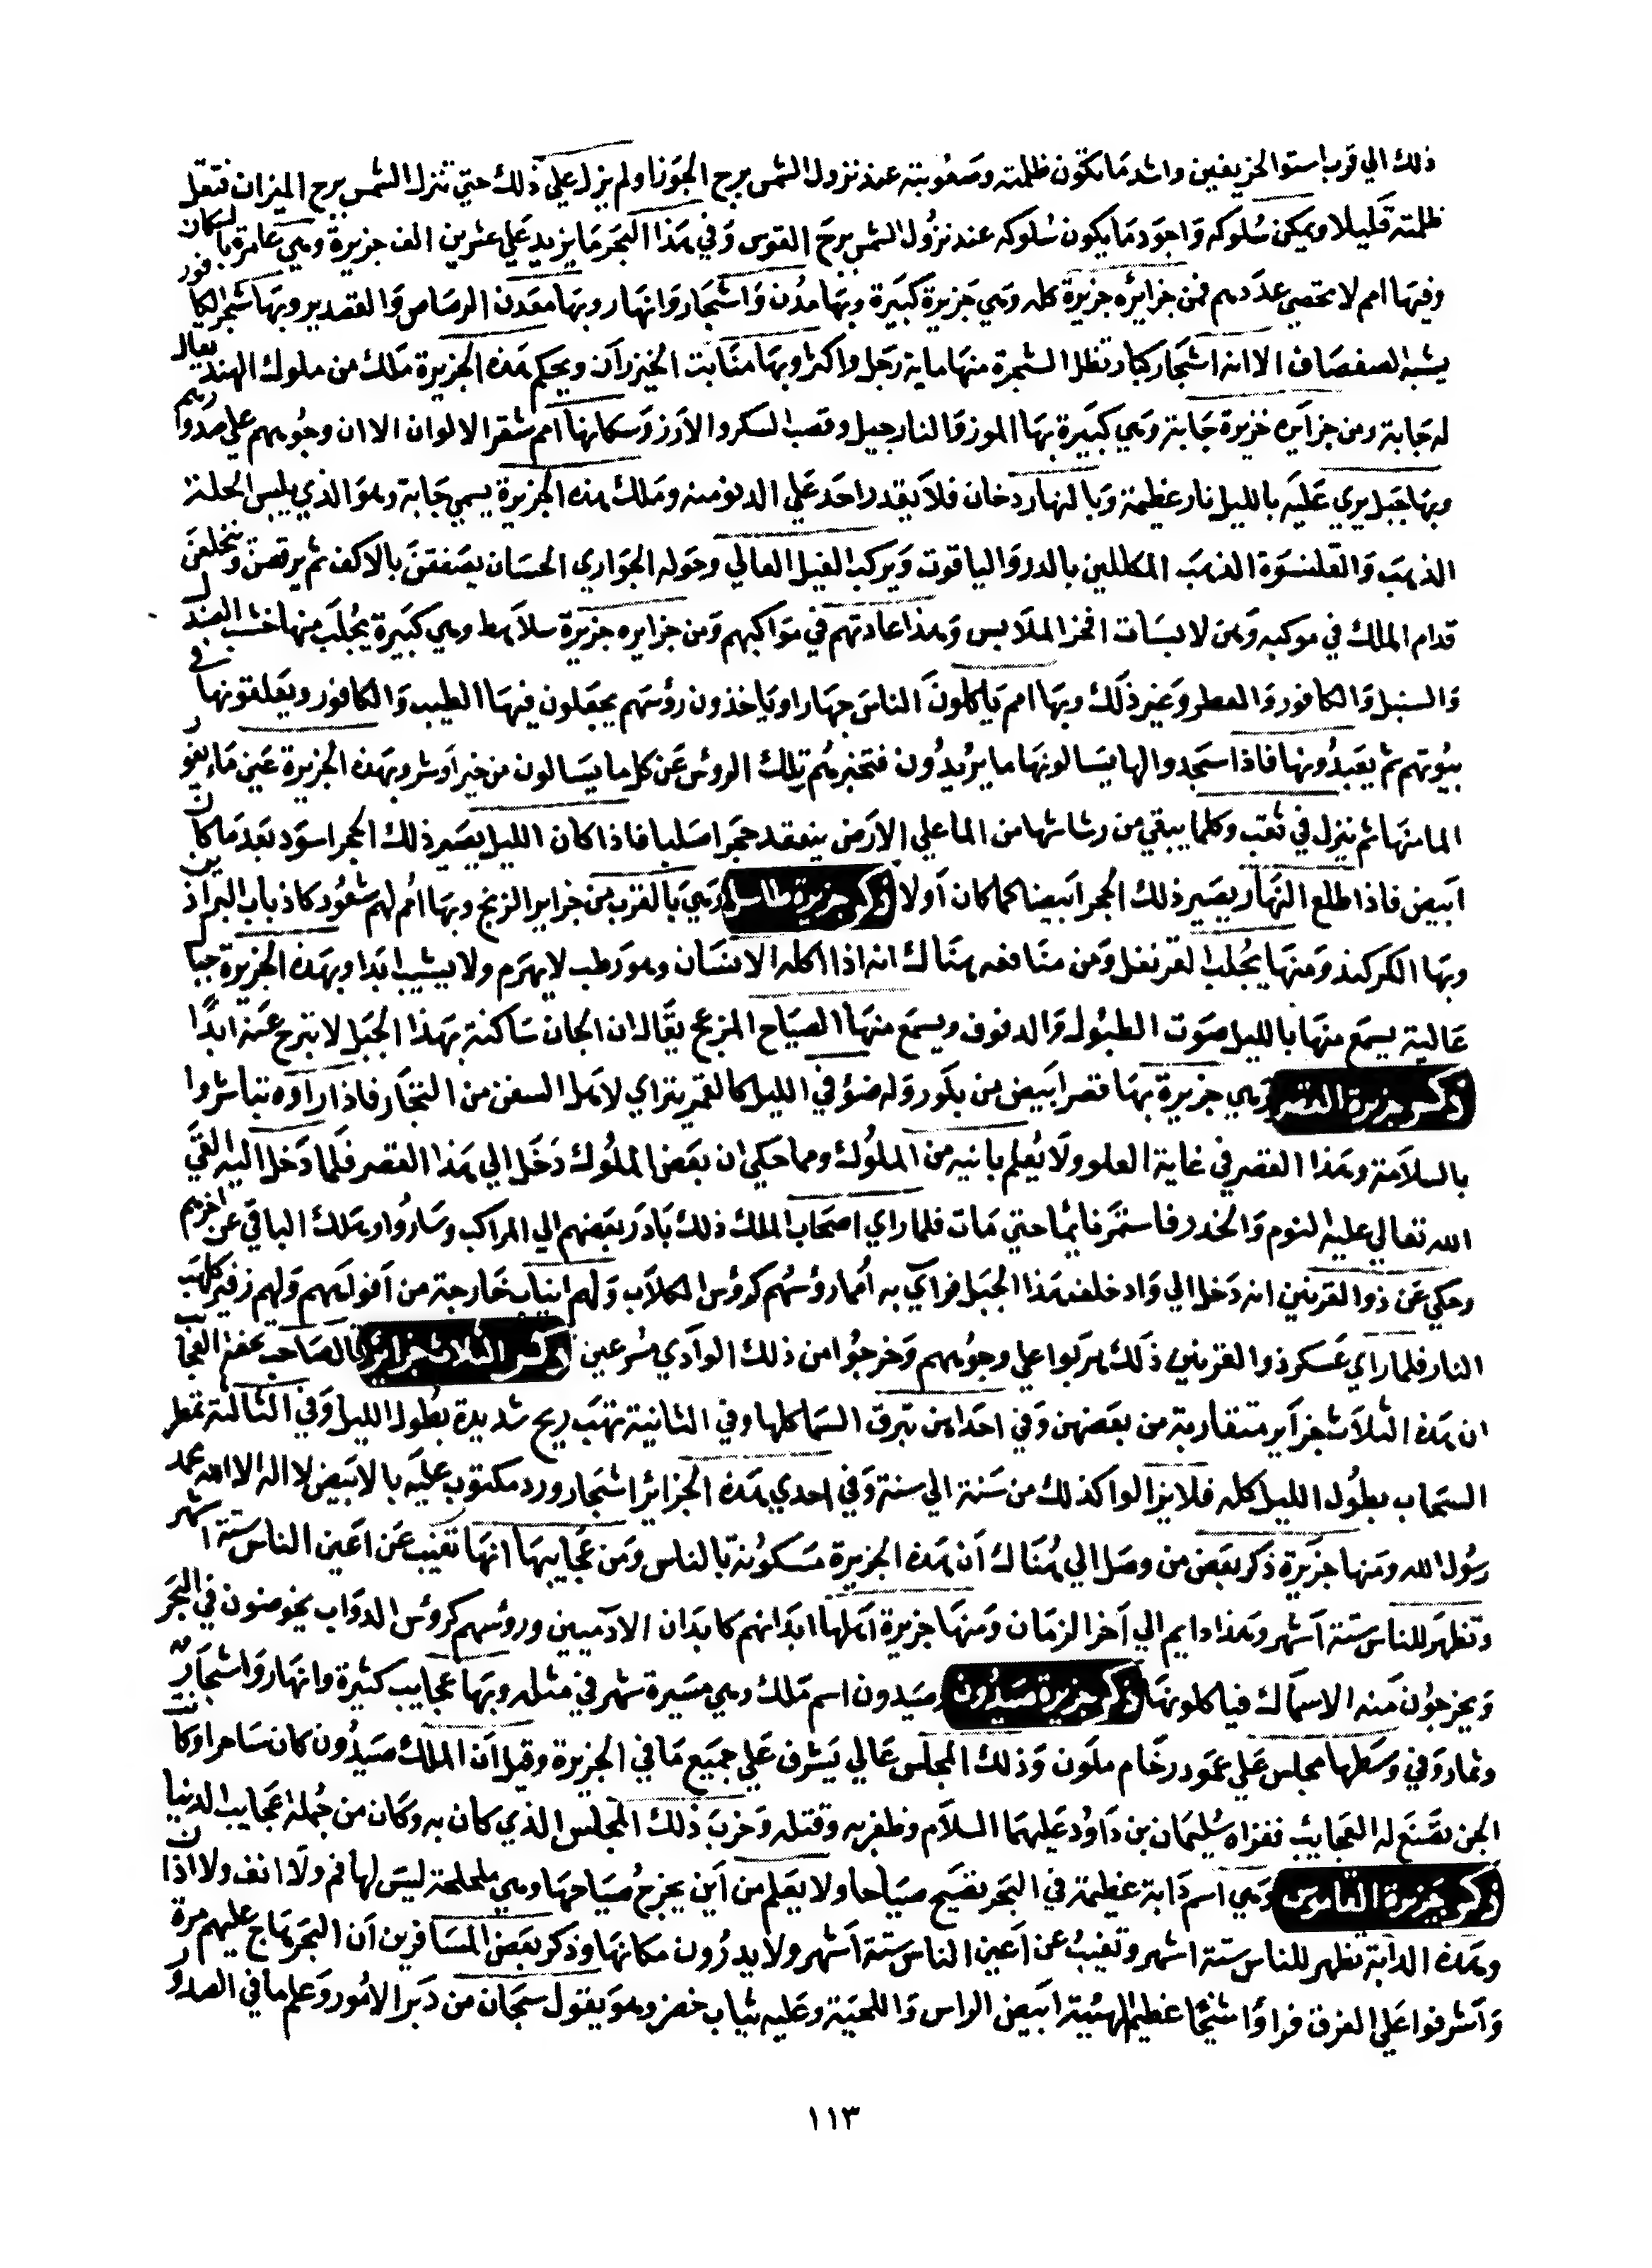 ذلك الي قرب استوا الخريفين واشد ما يكون ظلمته وصعوبته عند نزول الشمس برج الجوزا ولم يزل علي ذلك حتي تنزل الشمس برج الميزان فتقل
ظلمته قليلا ويمكن سلوكه واجود ما يكون سلوكه عند نزول الشمس برج القوس وفي هذا البحر ما يزيد علي عشرين الف جزيرة وهي عامرة بالسكان
وفيها امم لا تحصي عددهم فمن جزائره جزيرة كله وهي جزيرة كبيرة وبها مدن واشجار وانهار وبها معدن الرصاص والقصدير وبها شجر الكافور
يشبه الصفصاف الا انه اشجار كبار تظل الشجرة منها ماية رجل واكثر وبها منابت الخيزران ويحكم هذه الجزيرة ملك من ملوك الهند يقال
له جابة ومن جزايره جزيرة جابة وهي كبيرة بها الموز والنارجيل وقصب السكر والارز وسكانها امم شقر الالوان الا ان وجوههم علي صدورهم
وبها جبل يري عليه بالليل نار عظيمة وبالنهار دخان فلا يقدر احد علي الدنو منه وملك هذه الجزيرة يسمي جابة وهو الذي يلبس الحلة
الذهب والقلنسوة الذهب المكللين بالدر والياقوت ويركب الفيل العالي وحوله الجواري الحسان يصفقن بالاكف ثم يرقصن ويتخلعن
قدام الملك في موكبه وهن لابسات افخر الملابس وهذا عادتهم في مواكبهم ومن جزايره جزيرة سلاهط وهي كبيرة يجلب منها خشب الصندل
والسنبل والكافور والعطر وغير ذلك وبها امم ياكلون الناس جهارا وياخذون رؤسهم يجعلون فيها الطيب والكافور ويعلقونها في
بيوتهم ثم يعبدونها فاذا سجدوا لها يسالونها ما يريدون فتخبرهم تلك الروس عن كل ما يسالون من خير او شر وبهذه الجزيرة عين ماء يفور
الما منها ثم ينزل في ثقب وكلما يبقي من رشاشها من الما علي الارض ينعقد حجرا صلبا فاذا كان الليل يصير ذلك الحجر اسود بعد ما كان
ابيض فاذا طلع النهار يصير ذلك الحجر ابيضا كما كان اولا ذكر جزيرة وهي بالقرب من جزاير الزنج وبها امم لهم شعور كاذناب البراذين
وبها الكركند ومنها يجلب القرنفل ومن منافعه هناك انه اذا اكله الانسان وهو رطب لا يهرم ولا يشيب ابدا وبهذه الجزيرة جبال
عالية يسمع منها بالليل صوت الطبول والدفوف ويسمع منها الصياح المزعج يقال ان الجان ساكنة بهذا الجبل لا تبرح عنه ابدا
ذكر جزيرة القصر وهي جزيرة بها قصر ابيض من بلور وله ضؤ في الليل كالقمر يتراي لاهل السفن من التجار فاذا راوه تباشروا
بالسلامة وهذا القصر في غاية العلو ولا يعلم بانيه من الملوك ومما حكي ان بعض الملوك دخل الي هذا القصر فلما دخل اليه القي
الله تعالي عليه النوم والخدر فاستمر نايما حتي مات فلما راي اصحاب الملك ذلك بادر بعضهم الي المراكب وساروا وهلك الباقي عن اخرهم
وحكي عن ذوا القرنين انه دخل الي واد خلف هذا الجبل فراي به امما رؤسهم كرؤس الكلاب ولهم انياب خارجة من افواههم ولهم زفير كلهب
النار فلما راي عسكر ذوا القرنين ذلك هربوا علي وجوههم وخرجوا من ذلك الوادي مسرعين ذكر الثلاث جزاير قال صاحب تحفة العجايب
ان هذه الثلاث جزاير متقاربة من بعضهن وفي احداهن تبرق السما كلها وفي الثانية تهب ريح شديدة بطول الليل وفي الثالثة تمطر
السحاب بطول الليل كله فلا يزالوا كذلك من سنة الي سنة وفي احدي هذه الجزائر اشجار ورد مكتوب عليه بالابيض لا اله الا الله محمد
رسول الله ومنها جزيرة ذكر بعض من وصل الي هناك ان هذه الجزيرة مسكونة بالناس ومن عجايبها انها تغيب عن اعين الناس ستة اشهر
وتظهر للناس ستة اشهر وهذا دايم الي اخر الزمان ومنها جزيرة اهلها ابدانهم كابدان الادميين ورؤسهم كرؤس الدواب يخوضون في البحر
ويخرجون منه الاسماك فياكلونها ذكر جزيرة صيدون وصيدون اسم ملك وهي مسيرة شهر في مثله وبها عجايب كثيرة وانهار واشجار
وثمار وفي وسطها مجلس علي عمود رخام ملون وذلك المجلس عالي يشرف علي جميع ما في الجزيرة وقيل ان الملك صيدون كان ساحرا وكانت
الجن تصنع له العجائب فغزاه سليمان بن داود عليهما السلام وظفر به وقتله وخرب ذلك المجلس الذي كان به وكان من جملة عجايب الدنيا
ذكر جزيرة وهي اسم دابة عظيمة في البحر تصيح صياحا ولا يعلم من اين يخرج صياحها وهي ململمة ليس لها فم ولا انف ولا اذان
وهذه الدابة تظهر للناس ستة اشهر وتغيب عن اعين الناس ستة اشهر ولا يدرون مكانها وذكر بعض المسافرين ان البحر هاج عليهم مرة
واشرفوا علي الغرق فراوا شيخا عظيم الهيئة ابيض الراس واللحية وعليه ثياب خضر وهو يقول سبحان من دبر الامور وعلم ما في الصدور
١١٣